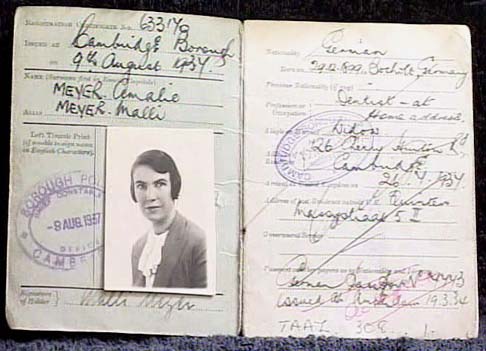 REGISTRATION CERTIFICATE No. 633178
ISSUED AT Cambridge Borough
ON 9th August 1937.
NAME (Surname first in Roman capitals)
MEYER Amalie
ALIAS MEYER. Malli
Left Thumb Print
(if unable to sign name
in English Characters).
BOROUGH POLICE
CHIEF CONSTABLE
-9 AUG. 1937
OFFICE
CAMBRIDGE
Signature
of Holder
Nationality German
Born on 29.12.1899. Bocholt, Germany
Previous Nationality (if any)
Profession or Occupation Dentist - at
Home address.
Widow
126 Cherry Hinton Rd
Cambridge
Arrived in United Kingdom on 26. 4. 1934.
Address of last Residence outside U.K.
5 II
Government Service
Passport or other papers as to Nationality and Identity.
German Passport
issued Amsterdam 19.3.34